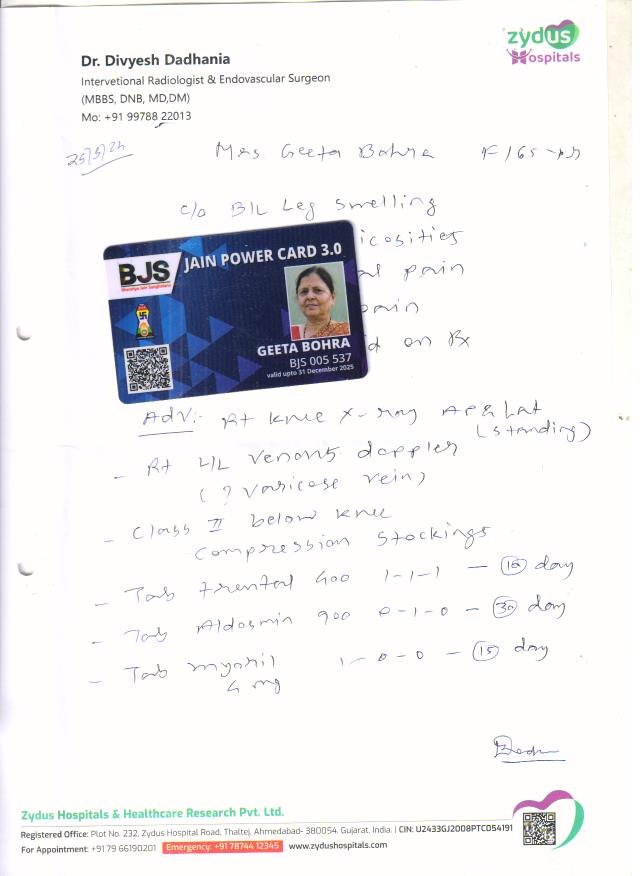 zydus
Hospitals
Dr. Divyesh Dadhania
Intervetional Radiologist & Endovascular Surgeon
(MBBS, DNB, MD,DM)
Mo: +91 99788 22013
25/5/24
Mrs Geeta Bohra F/65
c/o B/L Leg swelling
icosities
al pain
pain
d on Rx
BJS
JAIN POWER CARD 3.0
GEETA BOHRA
BJS 005 537
valid upto 31 December 2025
Adv:- Rt Knee X-ray AP & Lat
(standing)
- Rt L/L venous doppler
(? varicose vein)
- Class II below knee
compression stockings
- Tab trental 400 1-1-1 - day
- Tab Aldosmin 900 0-1-0 - 30 day
- Tab 1-0-0 - 15 day
4 mg
Zydus Hospitals & Healthcare Research Pvt. Ltd.
Registered Office: Plot No. 232, Zydus Hospital Road, Thaltej, Ahmedabad- 380054, Gujarat, India. | CIN: U2433GJ2008PTC054191
For Appointment: +91 79 66190201 Emergency: +91 78744 12345 www.zydushospitals.com